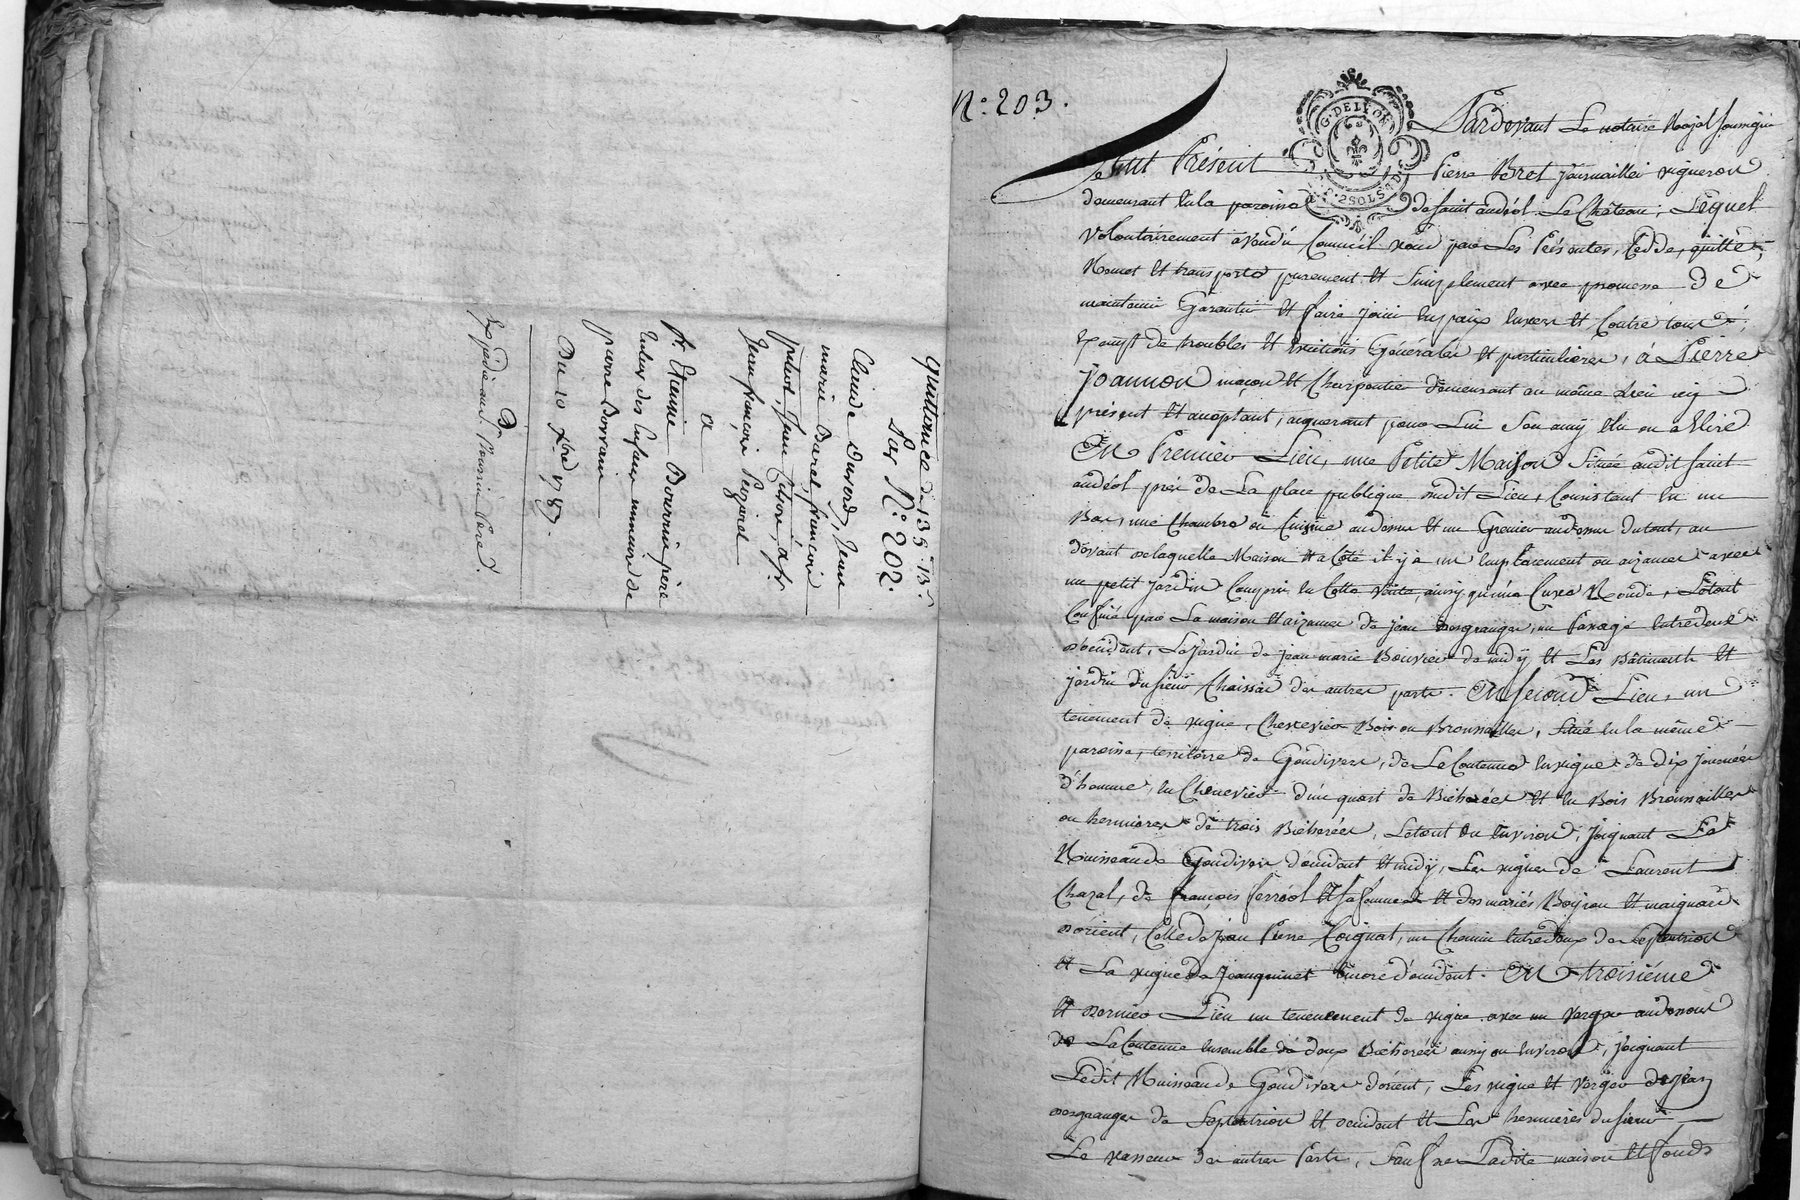 quittance de 135ᵗᵗ 13ˢ
Par N: 202.
Claude Duverd, Jeane
marie Darel, francoise
putrat, Jean
Jean françois Peyzaret
a
Sr. Etienne Bourrin père
tuteur des Enfans mineurs de
pierre Bourrin
Du 10 Xbre 1787.
Dr.
Expedié au d. Bourrin Père
N: 203.
G. DE LYON
2 SOLS 4 D
Pardevant Le notaire Royal soussigné
fut Présent Pierre Bret Journaillier vigneron
demeurant en la paroisse de saint andéol Le Château, Lequel
volontairement a vendu Comme il vend par Les Présentes, Cedde, quitte,
Remet et transporte purement et Simplement avec promesse de
maintenir Garantir et faire jouir en paix envers et Contre tous
troubles et Evictions Générales et particulieres, à Pierre
Joannon maçon et Charpentier demeurant au même Lieu icy
présent et acceptant, acquerant pour Lui Son amy élu ou a Elire
En Premier Lieu, une Petite Maison Située audit saint
andéol près de La place publique dudit Lieu, Consistant en un
Bas, une Chambre ou Cuisine au dessus et un Grenier au dessus du tout, au
devant de laquelle Maison et a Coté il y a un Emplacement ou aizances avec
un petit Jardin Compris en Cette Vente, ainsy qu'une Cuve Ronde, Letout
Confiné par La maison et aizances de Jean Desgranges, un Passage entredeux
d'occident, Le Jardin de Jean marie Bouvier de midÿ et Les Bâtiments et
jardin du sieur Chaissas des autres parts. En second Lieu, un
tenement de vigne, Chenevier Bois ou Broussailles, situé en la même
paroisse, territoire de Goudivers, de La Contenue en vigne de dix Journées
d'homme, en Chenevier d'un quart de Bicherée et en Bois Broussailles
ou hermiores de trois Bicherées, Letout ou Environ, Joignant Le
Ruisseau de Goudivers d'occident et midÿ, Les vignes de Laurent
Chazal, de françois ferréol et sa femme et des mariés Boyron et maignard
d'orient, Celle de Jean Pierre Coignat, un Chemin entredeux de Septentrion
et La vigne de Jeanquinet encore d'occident. En troisiéme
et dernier Lieu un tenement de vigne avec un verger au dessous
de La Contenue Ensemble de deux Bicherées aussy ou Environ, Joignant
Ledit Ruisseau de Goudivers d'orient, Les vigne et verger de Jean
desgranges de Septentrion et occident et Les hermieres du sieur
Le vasseur des autres Parts, Sauf Ladite maison et fonds